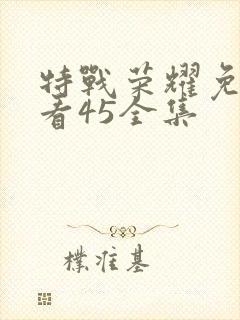 特戰荣耀免
看45全集
樸准基